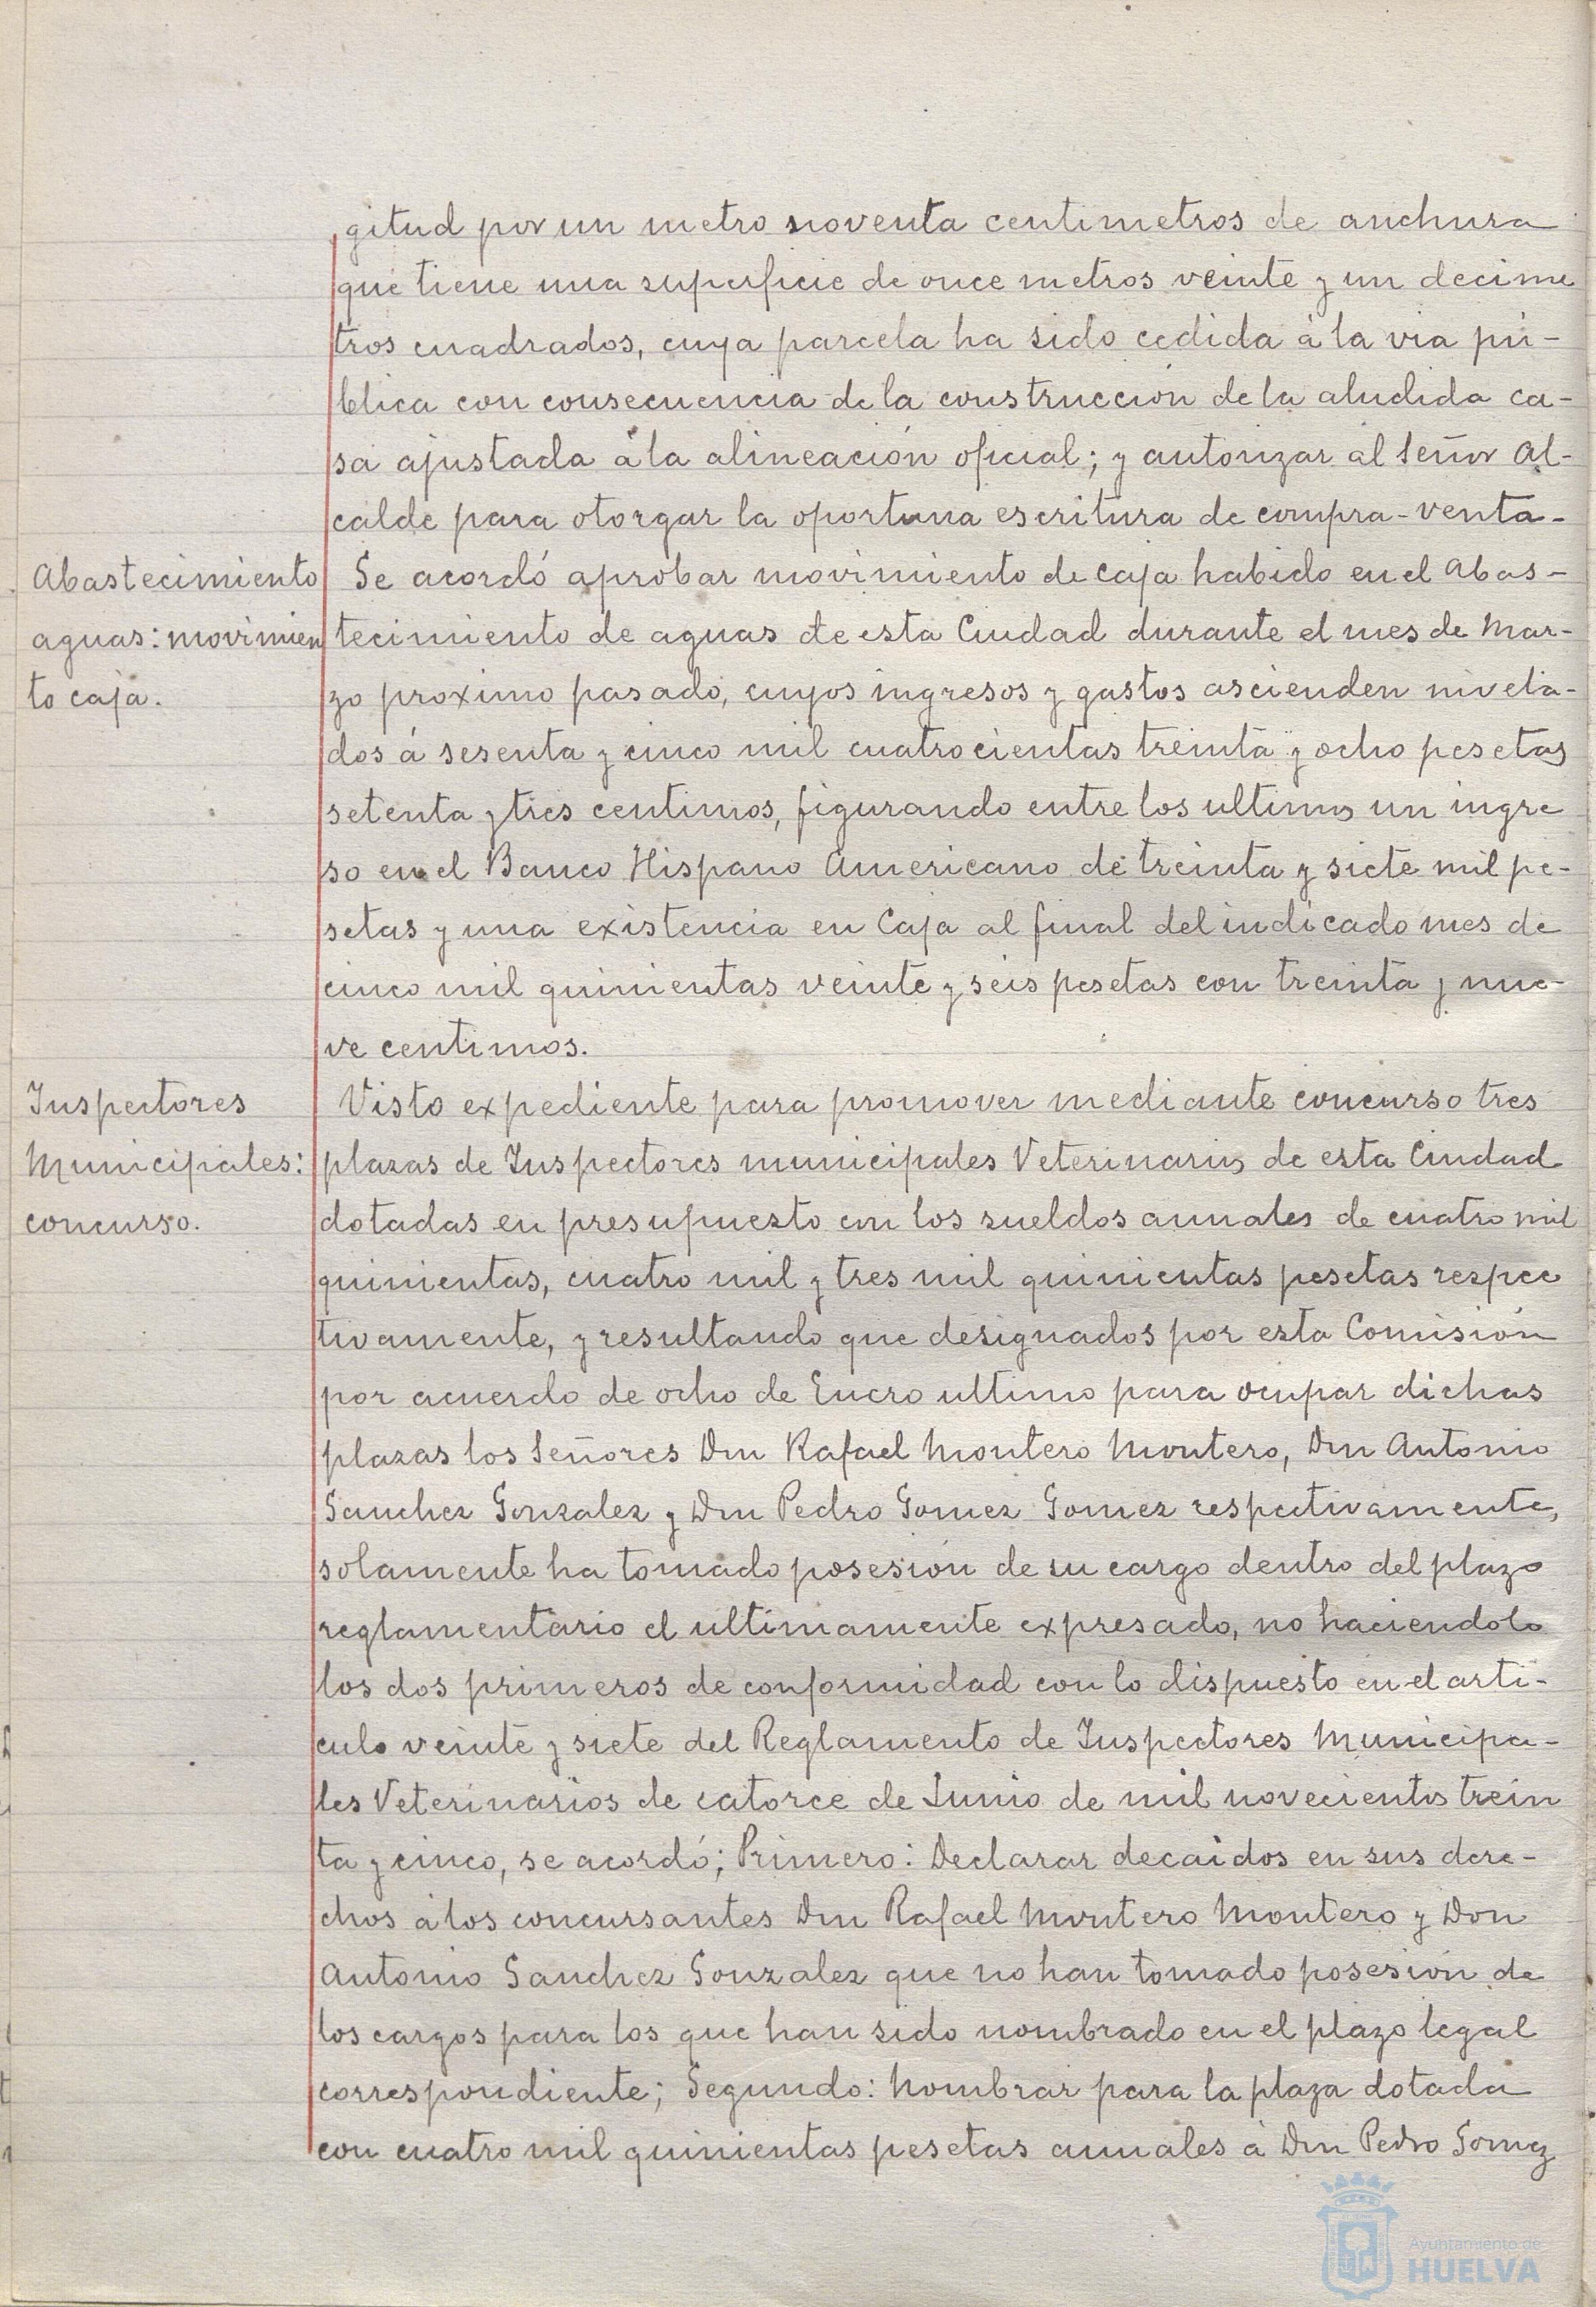 gitud por un metro noventa centimetros de anchura
que tiene una superficie de once metros veinte y un decime
tros cuadrados, cuya parcela ha sido cedida á la via pú-
blica con consecuencia de la construcción de la aludida ca-
sa ajustada á la alineación oficial; y autorizar al Señor Al-
calde para otorgar la oportuna escritura de compra-venta-
Abastecimiento
aguas: movimien
to caja.
Se acordó aprobar movimiento de caja habido en el Abas-
tecimiento de aguas de esta Ciudad durante el mes de Mar-
zo proximo pasado, cuyos ingresos y gastos ascienden nivela-
dos á sesenta y cinco mil cuatrocientas treinta y ocho pesetas
setenta y tres centimos, figurando entre los ultimos un ingre
so en el Banco Hispano Americano de treinta y siete mil pe-
setas y una existencia en Caja al final del indicado mes de
cinco mil quinientas veinte y seis pesetas con treinta y nue-
ve centimos.
Inspectores
Municipales:
concurso.
Visto expediente para promover mediante concurso tres
plazas de Inspectores municipales Veterinarios de esta Ciudad
dotadas en presupuesto con los sueldos annales de cuatro mil
quinientas, cuatro mil y tres mil quinientas pesetas respec
tivamente, y resultando que designados por esta Comisión
por acuerdo de ocho de Enero ultimo para ocupar dichas
plazas los Señores Don Rafael Montero Montero, Don Antonio
Sanchez Gonzalez y Don Pedro Gomez Gomez respectivamente,
solamente ha tomado posesión de su cargo dentro del plazo
reglamentario el ultimamente expresado, no haciendolo
los dos primeros de conformidad con lo dispuesto en el arti-
culo veinte y siete del Reglamento de Inspectores Municipa-
les Veterinarios de catorce de Junio de mil novecientos trein
ta y cinco, se acordó; Primero: Declarar decaidos en sus dere-
chos á los concursantes Don Rafael Montero Montero y Don
Antonio Sanchez Gonzalez que no han tomado posesión de
los cargos para los que han sido nombrado en el plazo legal
correspondiente; Segundo: Nombrar para la plaza dotada
con cuatro mil quinientas pesetas annales á Don Pedro Gomez
Ayuntamiento de
HUELVA